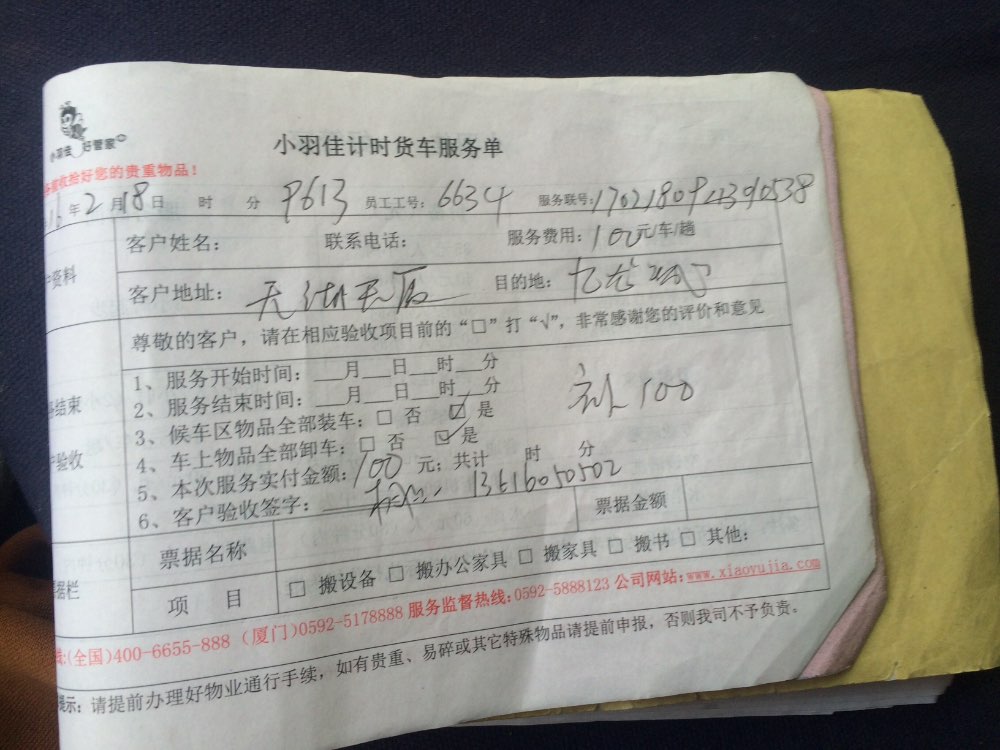 小羽佳 好管家
小羽佳计时货车服务单
收拾好您的贵重物品!
年2月18日 时 分 P613 员工工号: 6634 服务联号:
客户姓名: 联系电话: 服务费用: 100元/车/趟
资料
客户地址: 目的地:
尊敬的客户,请在相应验收项目前的“□”打“√”,非常感谢您的评价和意见
1、服务开始时间:___月___日___时___分
2、服务结束时间:___月___日___时___分
结束
3、候车区物品全部装车:□ 否 ☑ 是
补100
验收
4、车上物品全部卸车:□ 否 ☑ 是
5、本次服务实付金额:100元;共计 时 分
6、客户验收签字: 13616050502
票据名称 票据金额
栏
项 目 □ 搬设备 □ 搬办公家具 □ 搬家具 □ 搬书 □ 其他:
线:(全国)400-6655-888 (厦门)0592-5178888 服务监督热线:0592-5888123 公司网站:www.xiaoyujia.com
提示:请提前办理好物业通行手续,如有贵重、易碎或其它特殊物品请提前申报,否则我司不予负责。